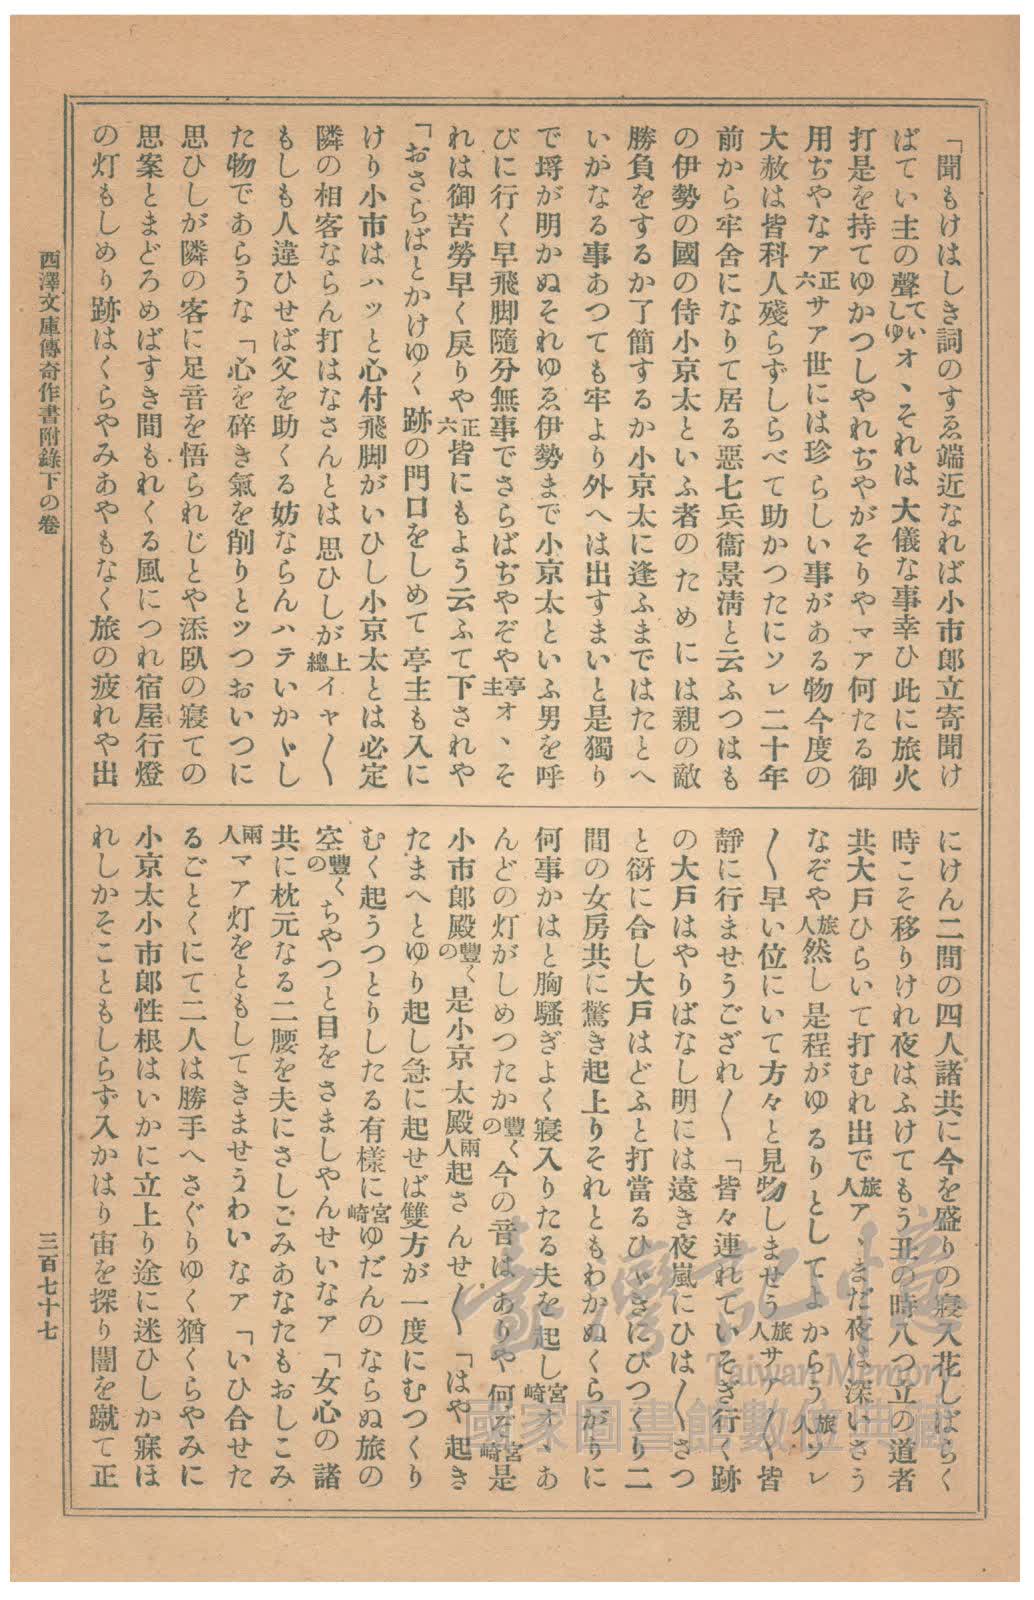 「聞もけはしき詞のすゑ端近なれば小市郎立寄聞け
ばてい主の聲ていしゆオヽそれは大儀な事幸ひ此に旅火
打是を持てゆかつしやれぢやがそりやマア何たる御
用ぢやなア正六サア世には珍らしい事がある物今度の
大赦は皆科人殘らずしらべて助かつたにソレ二十年
前から牢舍になりて居る惡七兵衞景淸と云ふつはも
の伊勢の國の侍小京太といふ者のためには親の敵
勝負をするか了簡するか小京太に逢ふまではたとへ
いかなる事あつても牢より外へは出すまいと是獨り
で埓が明かぬそれゆゑ伊勢まで小京太といふ男を呼
びに行く早飛脚隨分無事でさらばぢやぞや亭主オヽそ
れは御苦勞早く戻りや正六皆にもよう云ふて下されや
「おさらばとかけゆく跡の門口をしめて亭主も入に
けり小市はハッと心付飛脚がいひし小京太とは必定
隣の相客ならん打はなさんとは思ひしが上總イヤ〱
もしも人違ひせば父を助くる妨ならんハテいかゞし
た物であらうな「心を碎き氣を削りとッつおいつに
思ひしが隣の客に足音を悟られじとや添臥の寢ての
思案とまどろめばすき間もれくる風につれ宿屋行燈
の灯もしめり跡はくらやみあやもなく旅の疲れや出
にけん二間の四人諸共に今を盛りの寢入花しばらく
時こそ移りけれ夜はふけてもう丑の時八つ立の道者
共大戸ひらいて打むれ出で旅人アヽまだ夜は深いさう
なぞや旅人然し是程がゆるりとしてよからう旅人ソレ
〱早い位にいて方々と見物しませう旅人サア〱皆
靜に行ませうござれ〱「皆々連れていそぎ行く跡
の大戸はやりばなし明には遠き夜嵐にひは〱さつ
と谺に合し大戸はどふと打當るひゞきにびつくり二
間の女房共に驚き起上りそれともわかぬくらがりに
何事かはと胸騷ぎよく寢入りたる夫を起し宮崎オヽあ
んどの灯がしめつたか豐の〱今の音はありや何ぞ宮崎是
小市郎殿豐の〱是小京太殿兩人起さんせ〱「はや起き
たまへとゆり起し急に起せば雙方が一度にむつくり
むく起うつとりしたる有樣に宮崎ゆだんのならぬ旅の
空豐の〱ちやつと目をさましやんせいなァ「女心の諸
共に枕元なる二腰を夫にさしごみあなたもおしこみ
兩人マア灯をともしてきませうわいなア「いひ合せた
るごとくにて二人は勝手へさぐりゆく猶くらやみに
小京太小市郎性根はいかに立上り途に迷ひしか寐ほ
れしかそこともしらず入かはり宙を探り闇を蹴て正
西澤文庫傳奇作書附錄下の卷
三百七十七
臺灣記憶
Taiwan Memory
國家圖書館數位典藏